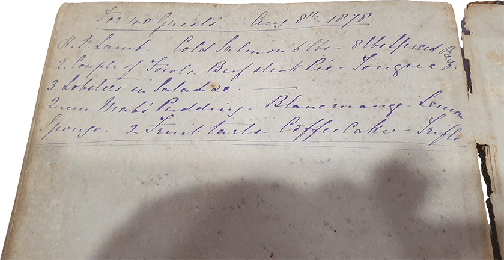 For 40 Guests - Aug 8th 1878
Lamb - Cold Salmon 6 lbs - 8 lbs Spiced Beef
2 Couple of Fowls Beef steak Pie - Tongue
3 Lobsters in Salad
Pudding - Blancmange - Lemon
Sponge - 2 Fruit Tarts - Coffee Cake - Trifle